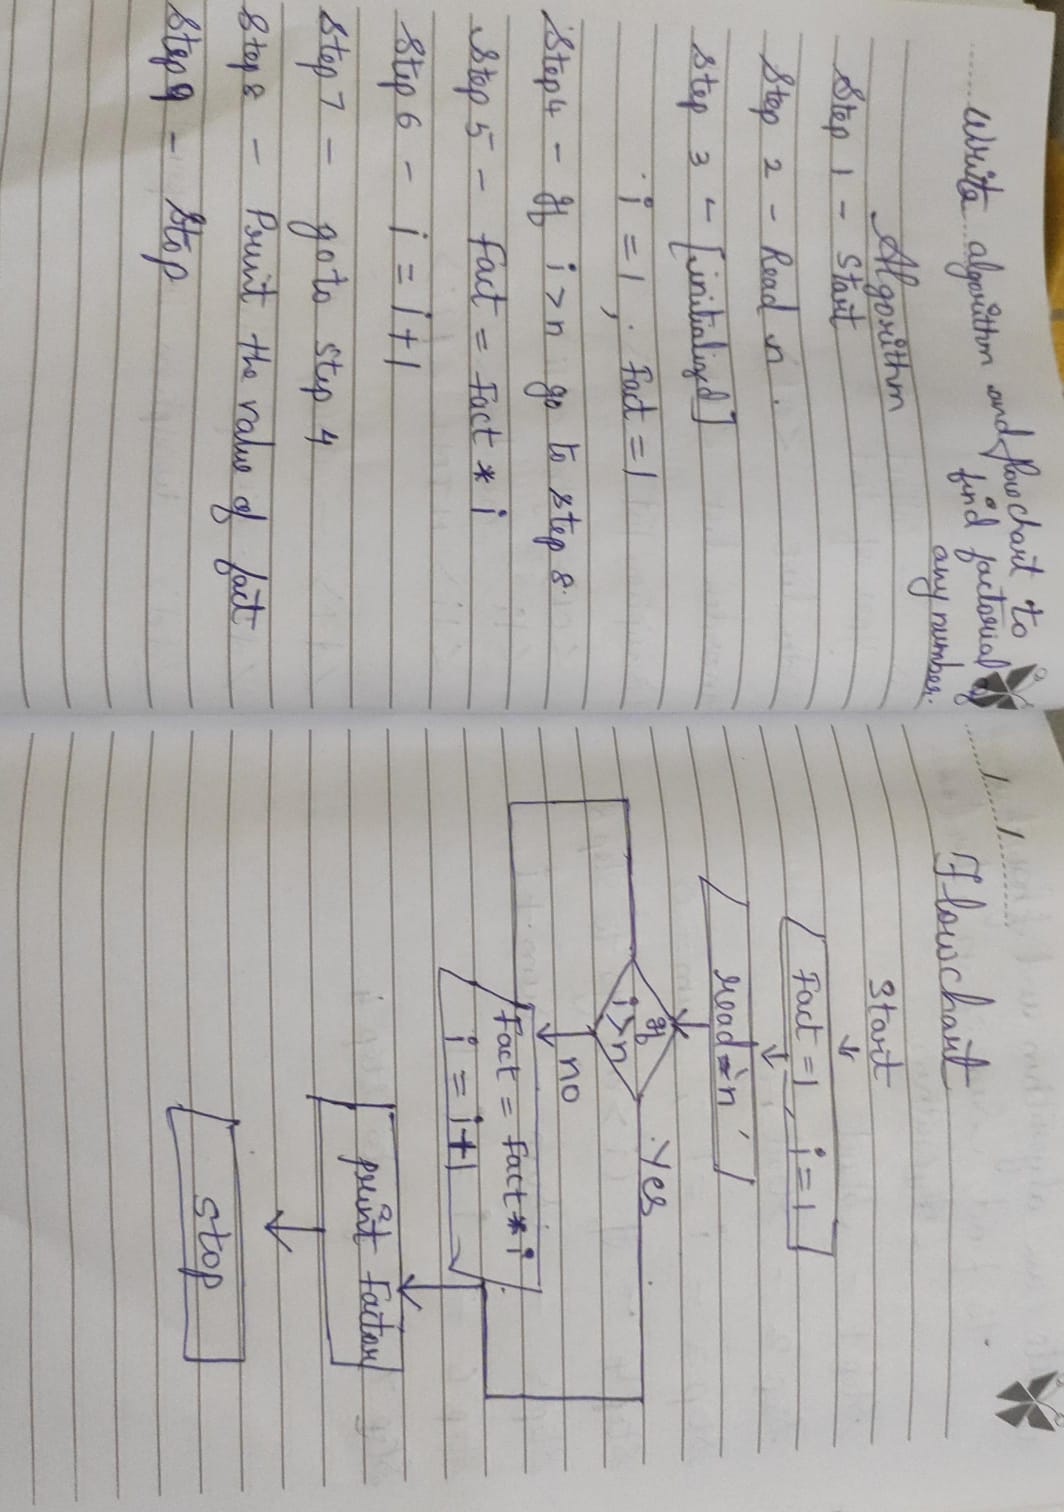 Write algorithm and flowchart to
find factorial of
any number.
Algorithm
Step 1 - Start
Step 2 - Read n.
Step 3 - [initialized]
i = 1, fact = 1
Step 4 - If i > n go to step 8.
Step 5 - fact = fact * i
Step 6 - i = i + 1
Step 7 - goto step 4
Step 8 - Print the value of fact
Step 9 - Stop
Flowchart
Start
Fact = 1, i = 1
read 'n'
If
i > n
Yes
no
fact = fact * i
i = i + 1
print factor
Stop